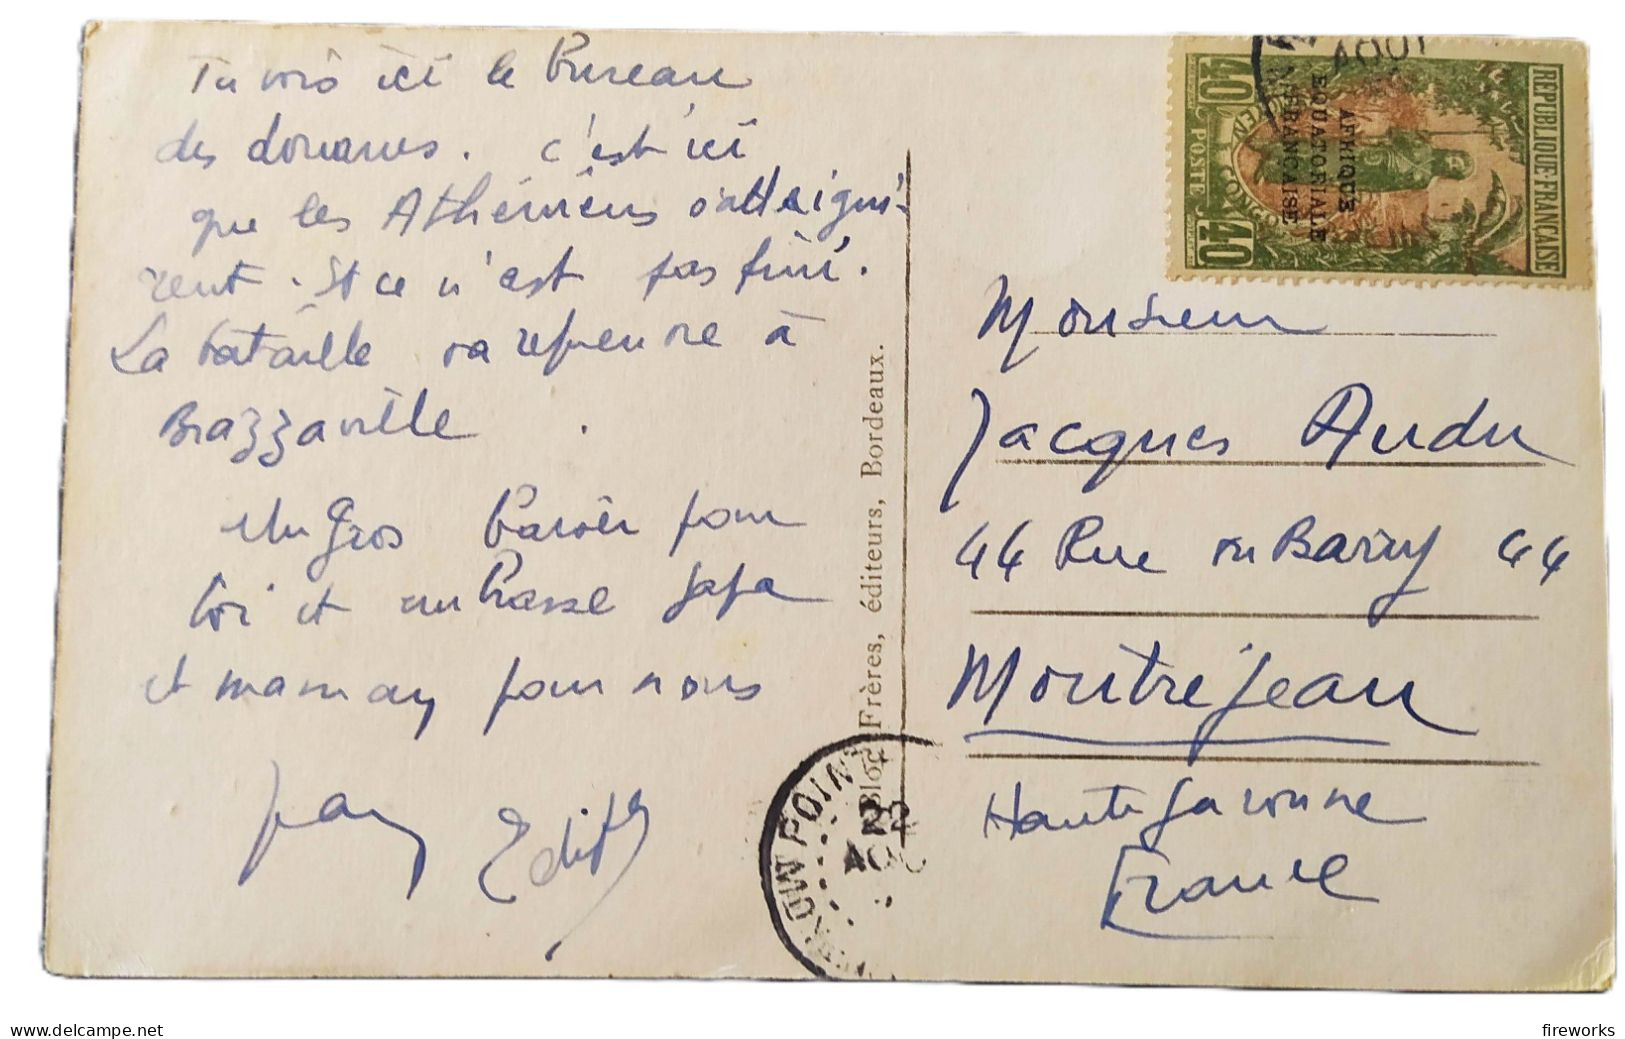 Tu vois ici le Bureau
des douanes. C'est ici
que les Athéniens s'atteigni-
rent. Et ce n'est pas fini.
La bataille va reprendre à
Brazzaville.
Un gros baiser pour
toi et embrasse papa
et maman pour nous
Edith
Bloc Frères, éditeurs, Bordeaux.
REPUBLIQUE FRANÇAISE
AFRIQUE
EQUATORIALE
FRANÇAISE
40 POSTE 40
CONGO
AOUT
Monsieur
Jacques Audu
44 Rue du Barry 44
Montréjeau
Haute Garonne
France
POINTE
22
AOU
delcampe.net
fireworks